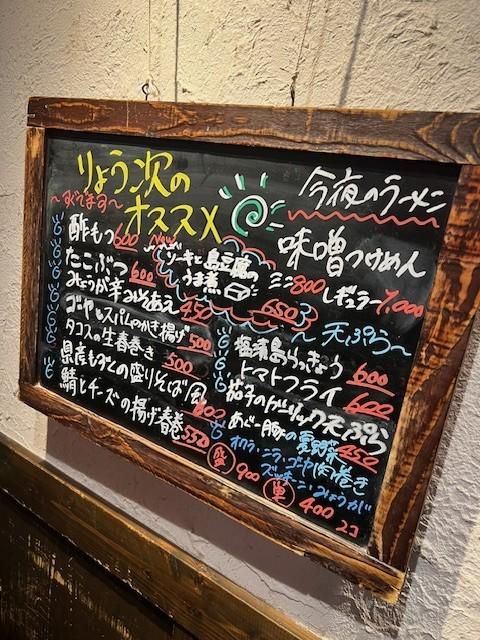 りょう次の
オススメ
～すぐでます～
酢もつ 600
たこぶつ 600
みょうが辛みそあえ 450
ゴーヤとスパムのかき揚げ 500
タコスの生春巻き 500
県産もずくの盛りそば風 600
鯖とチーズの揚げ春巻 550
New
ソーキと島豆腐の
うま煮 650
今夜のラーメン
味噌つけめん
ミニ 800 レギュラー 1,000
～天ぷら～
塩漬島らっきょう 600
トマトフライ 600
茄子のガーリック天ぷら 450
あぐー豚の夏野菜
肉巻き
オクラ・ニラ・ゴーヤ
ズッキーニ・みょうが
盛 900 単 400 2コ